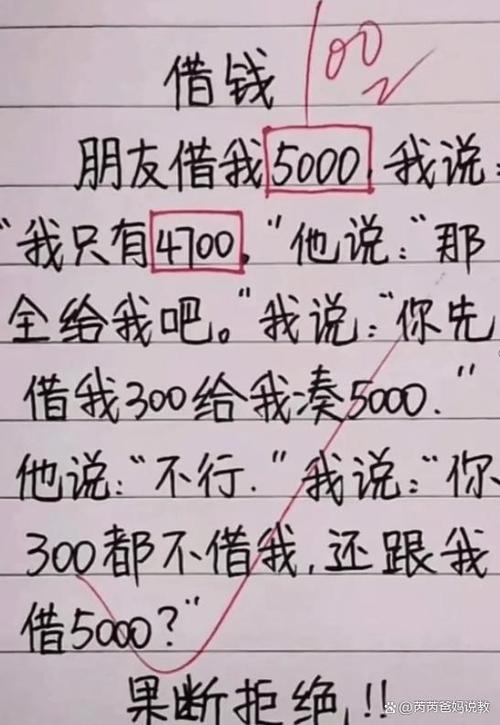 100
借钱
朋友借我5000,我说:
"我只有4700。"他说:"那
全给我吧。"我说:"你先
借我300给我凑5000."
他说:"不行."我说:"你
300都不借我,还跟我
借5000?"
果断拒绝!!
@芮芮爸妈说教